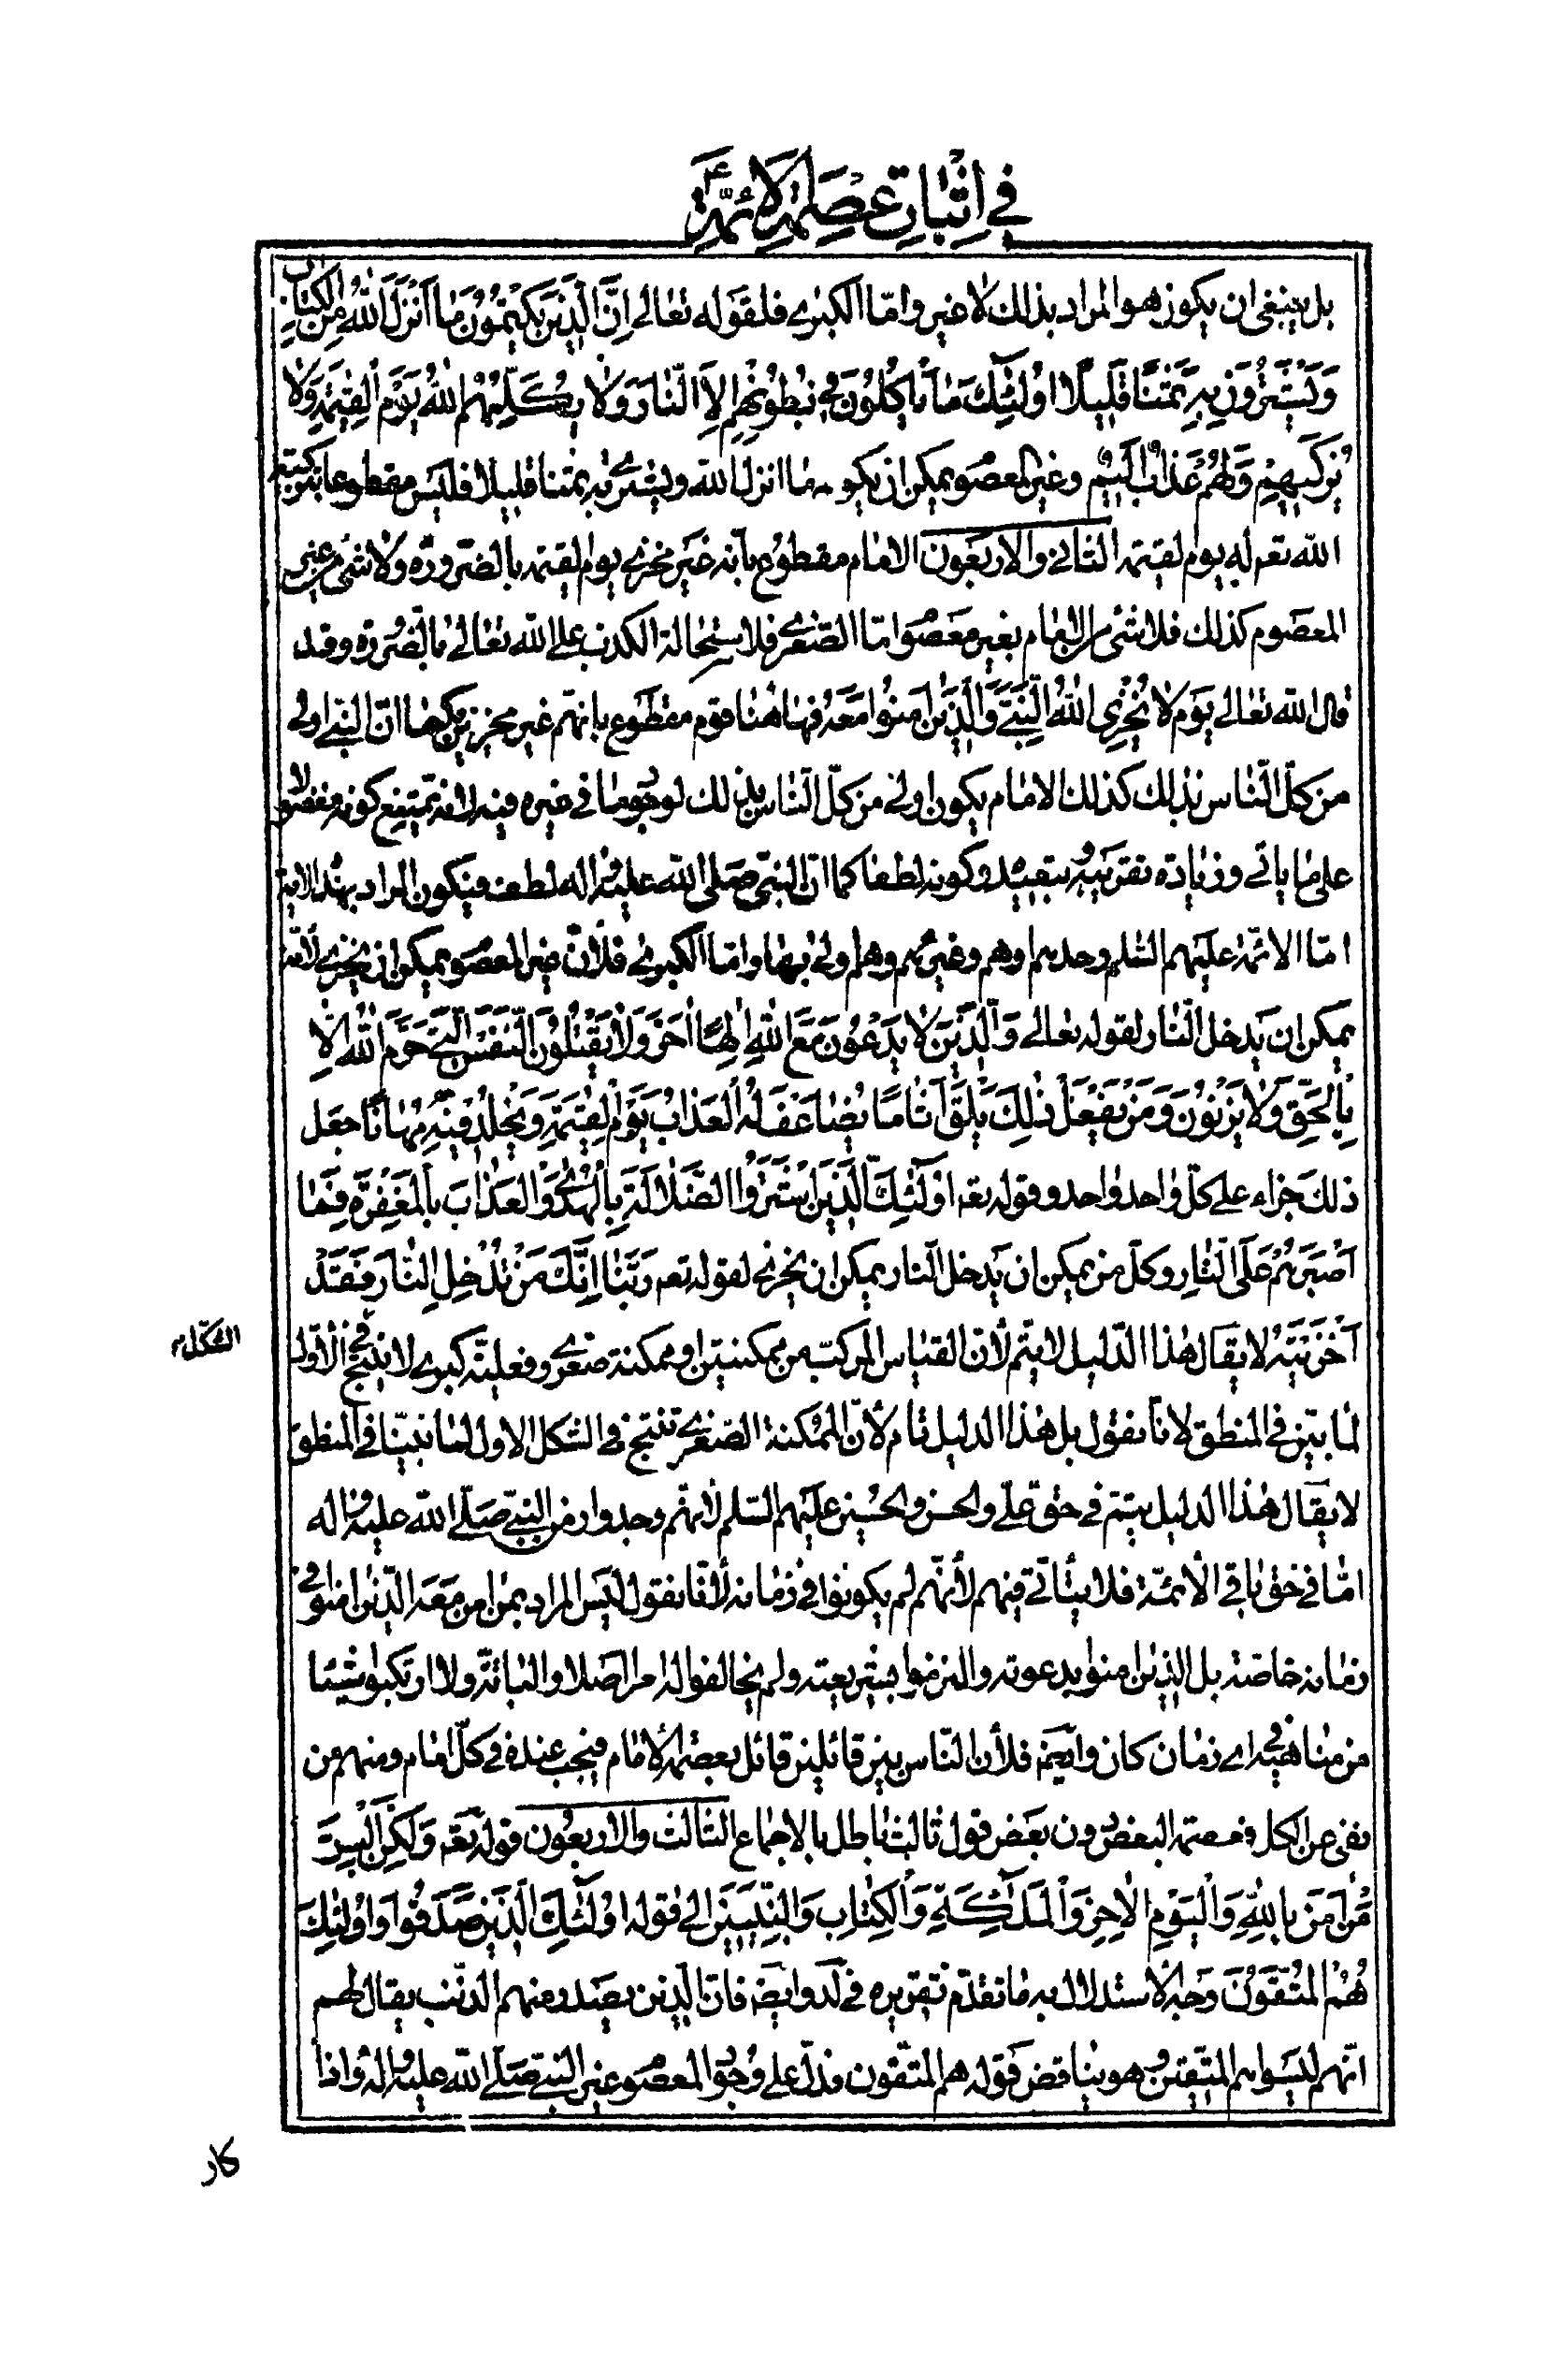 في إثبات عصمة الأئمّة ع
بل ينبغي ان يكون هو المراد بذلك لا غير وامّا الكبرى فلقوله تعالى اِنَّ الَّذينَ يَكْتُمُونَ ما اَنْزَلَ اللهُ مِنَ الْكِتابِ
وَيَشْتَرُونَ بِهِ ثَمَناً قَليلاً اُولٰئِكَ ما يَاْكُلُونَ في بُطُونِهِمْ اِلاَّ النّارَ وَلا يُكَلِّمُهُمُ اللهُ يَوْمَ الْقِيٰمَةِ وَلا
يُزَكّيهِمْ وَلَهُمْ عَذابٌ اَليمٌ وغير المعصوم يمكن ان يكتم ما انزل الله ويشتري به ثمنا قليلا فليس مقطوعا بتزكية
الله تعم له يوم القيٰمة الثاني والاربعون الامام مقطوع بأنه غير مخزى يوم القيٰمة بالضّرورة ولا شئ من غير
المعصوم كذلك فلا شئ من الامام بغير معصوم امّا الصّغرى فلاستحالة الكذب على الله تعالى بالضّرورة وقد
قال الله تعالى يَوْمَ لا يُخْزِي اللهُ النَّبِيَّ وَالَّذينَ اٰمَنُوا مَعَهُ فهاهنا قوم مقطوع بانهم غير مخزيين كما انّ النبي اولى
من كلّ النّاس بذلك كذلك الامام يكون اولى من كلّ النّاس بذلك لوجود ما في غيره فيه لانه يمتنع كونه مفضولا
على ما يأتي وزيادة تقريبه وتبعيده وكونه لطفا كما انّ النبيّ صلى الله عليه واله لطف فيكون المراد بهذه الاية
امّا الائمّة عليهم السّلم وحدهم او هم وغيرهم وهم اولى بها وامّا الكبرى فلأنّ غير المعصوم يمكن ان يخزى لأنّه
يمكن ان يدخل النّار لقوله تعالى وَالَّذينَ لا يَدْعُونَ مَعَ اللهِ اِلٰهاً اٰخَرَ وَلا يَقْتُلُونَ النَّفْسَ الَّتي حَرَّمَ اللهُ اِلاّ
بِالْحَقِّ وَلا يَزْنُونَ وَمَنْ يَفْعَلْ ذٰلِكَ يَلْقَ اَثاماً يُضاعَفْ لَهُ الْعَذابُ يَوْمَ الْقِيٰمَةِ وَيَخْلُدْ فيهِ مُهاناً جعل
ذلك جزاء على كلّ واحد واحد وقوله تعم اُولٰئِكَ الَّذينَ اشْتَرَوُا الضَّلالَةَ بِالْهُدىٰ وَالْعَذابَ بِالْمَغْفِرَةِ فَما
اَصْبَرَهُمْ عَلَى النّارِ وكلّ من يمكن ان يدخل النار يمكن ان يخزى لقوله تعم رَبَّنا اِنَّكَ مَنْ تُدْخِلِ النّارَ فَقَدْ
اَخْزَيْتَهُ لا يقال هذا الدّليل لا يتم لأن القياس المركب من ممكنتين او ممكنة صغرى وفعليّة كبرى لا ينتج في الأوّل
الشكل
لما بيّن في المنطق لانّا نقول بل هذا الدليل تام لأنّ الممكنة الصّغرى تنتج في الشكل الاول لما بيّنا في المنطق
لا يقال هذا الدليل يتم في حق عليّ والحسن والحسين عليهم السّلم لأنهم وجدوا زمن النبي صلّى الله عليه واله
امّا في حق باقي الأئمّة فلا يتأتّى فيهم لأنّهم لم يكونوا في زمانه لأنّا نقول ليس المراد بمن امن معه الذين امنوا في
زمانه خاصّة بل الذين امنوا بدعوته والتزموا بشريعته ولم يخالفوا له امرا اصلا والبتّة ولا ارتكبوا شيئا
من مناهيه في اى زمان كان وايضم فلأن النّاس بين قائلين قائل بعصمة الامام فيجب عنده في كلّ امام ومنهم من
نفى عن الكل فعصمة البعض دون بعض قول ثالث باطل بالاجماع الثالث والاربعون قوله تعم وَلٰكِنَّ الْبِرَّ
مَنْ اٰمَنَ بِاللهِ وَالْيَوْمِ الْاٰخِرِ وَالْمَلٰئِكَةِ وَالْكِتابِ وَالنَّبِيّينَ الى قوله اُولٰئِكَ الَّذينَ صَدَقُوا وَاُولٰئِكَ
هُمُ الْمُتَّقُونَ وجه الأستدلال به ما تقدّم تقريره في وايضم فان الّذين يصدر منهم الذّنب يقال لهم
انّهم ليسوا بمتّقين وهو يناقض قوله هم المتّقون فدلّ على وجود المعصوم غير النبي صلّى الله عليه واله واذا
كان